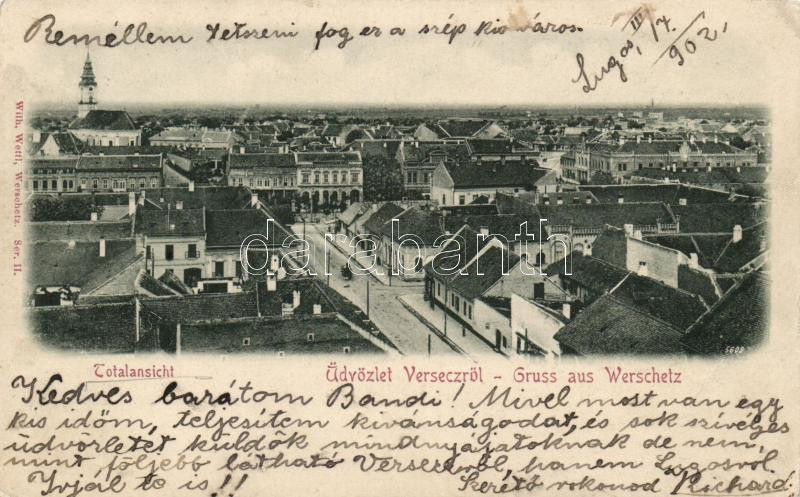 Remélem tetszeni fog ez a szép kis város.
Lugos, III/7. 902.
Wilh. Wettl, Werschetz. Ser. II.
darabanth.com
5609
Totalansicht
Üdvözlet Verseczről - Gruss aus Werschetz
Kedves barátom Bandi! Mivel most van egy
kis időm, teljesítem kivánságodat, és sok szíveges
üdvözletet küldök mindnyájatoknak de nem,
mint följebb látható Verseczről, hanem Lugosról.
Irjál te is!! Szerető rokonod Richard.